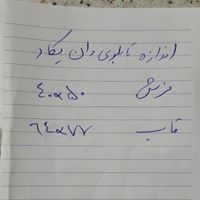 اندازه تابلوی وان یکاد
فرش ۵۰×۴۰
قاب ۷۷×۶۴